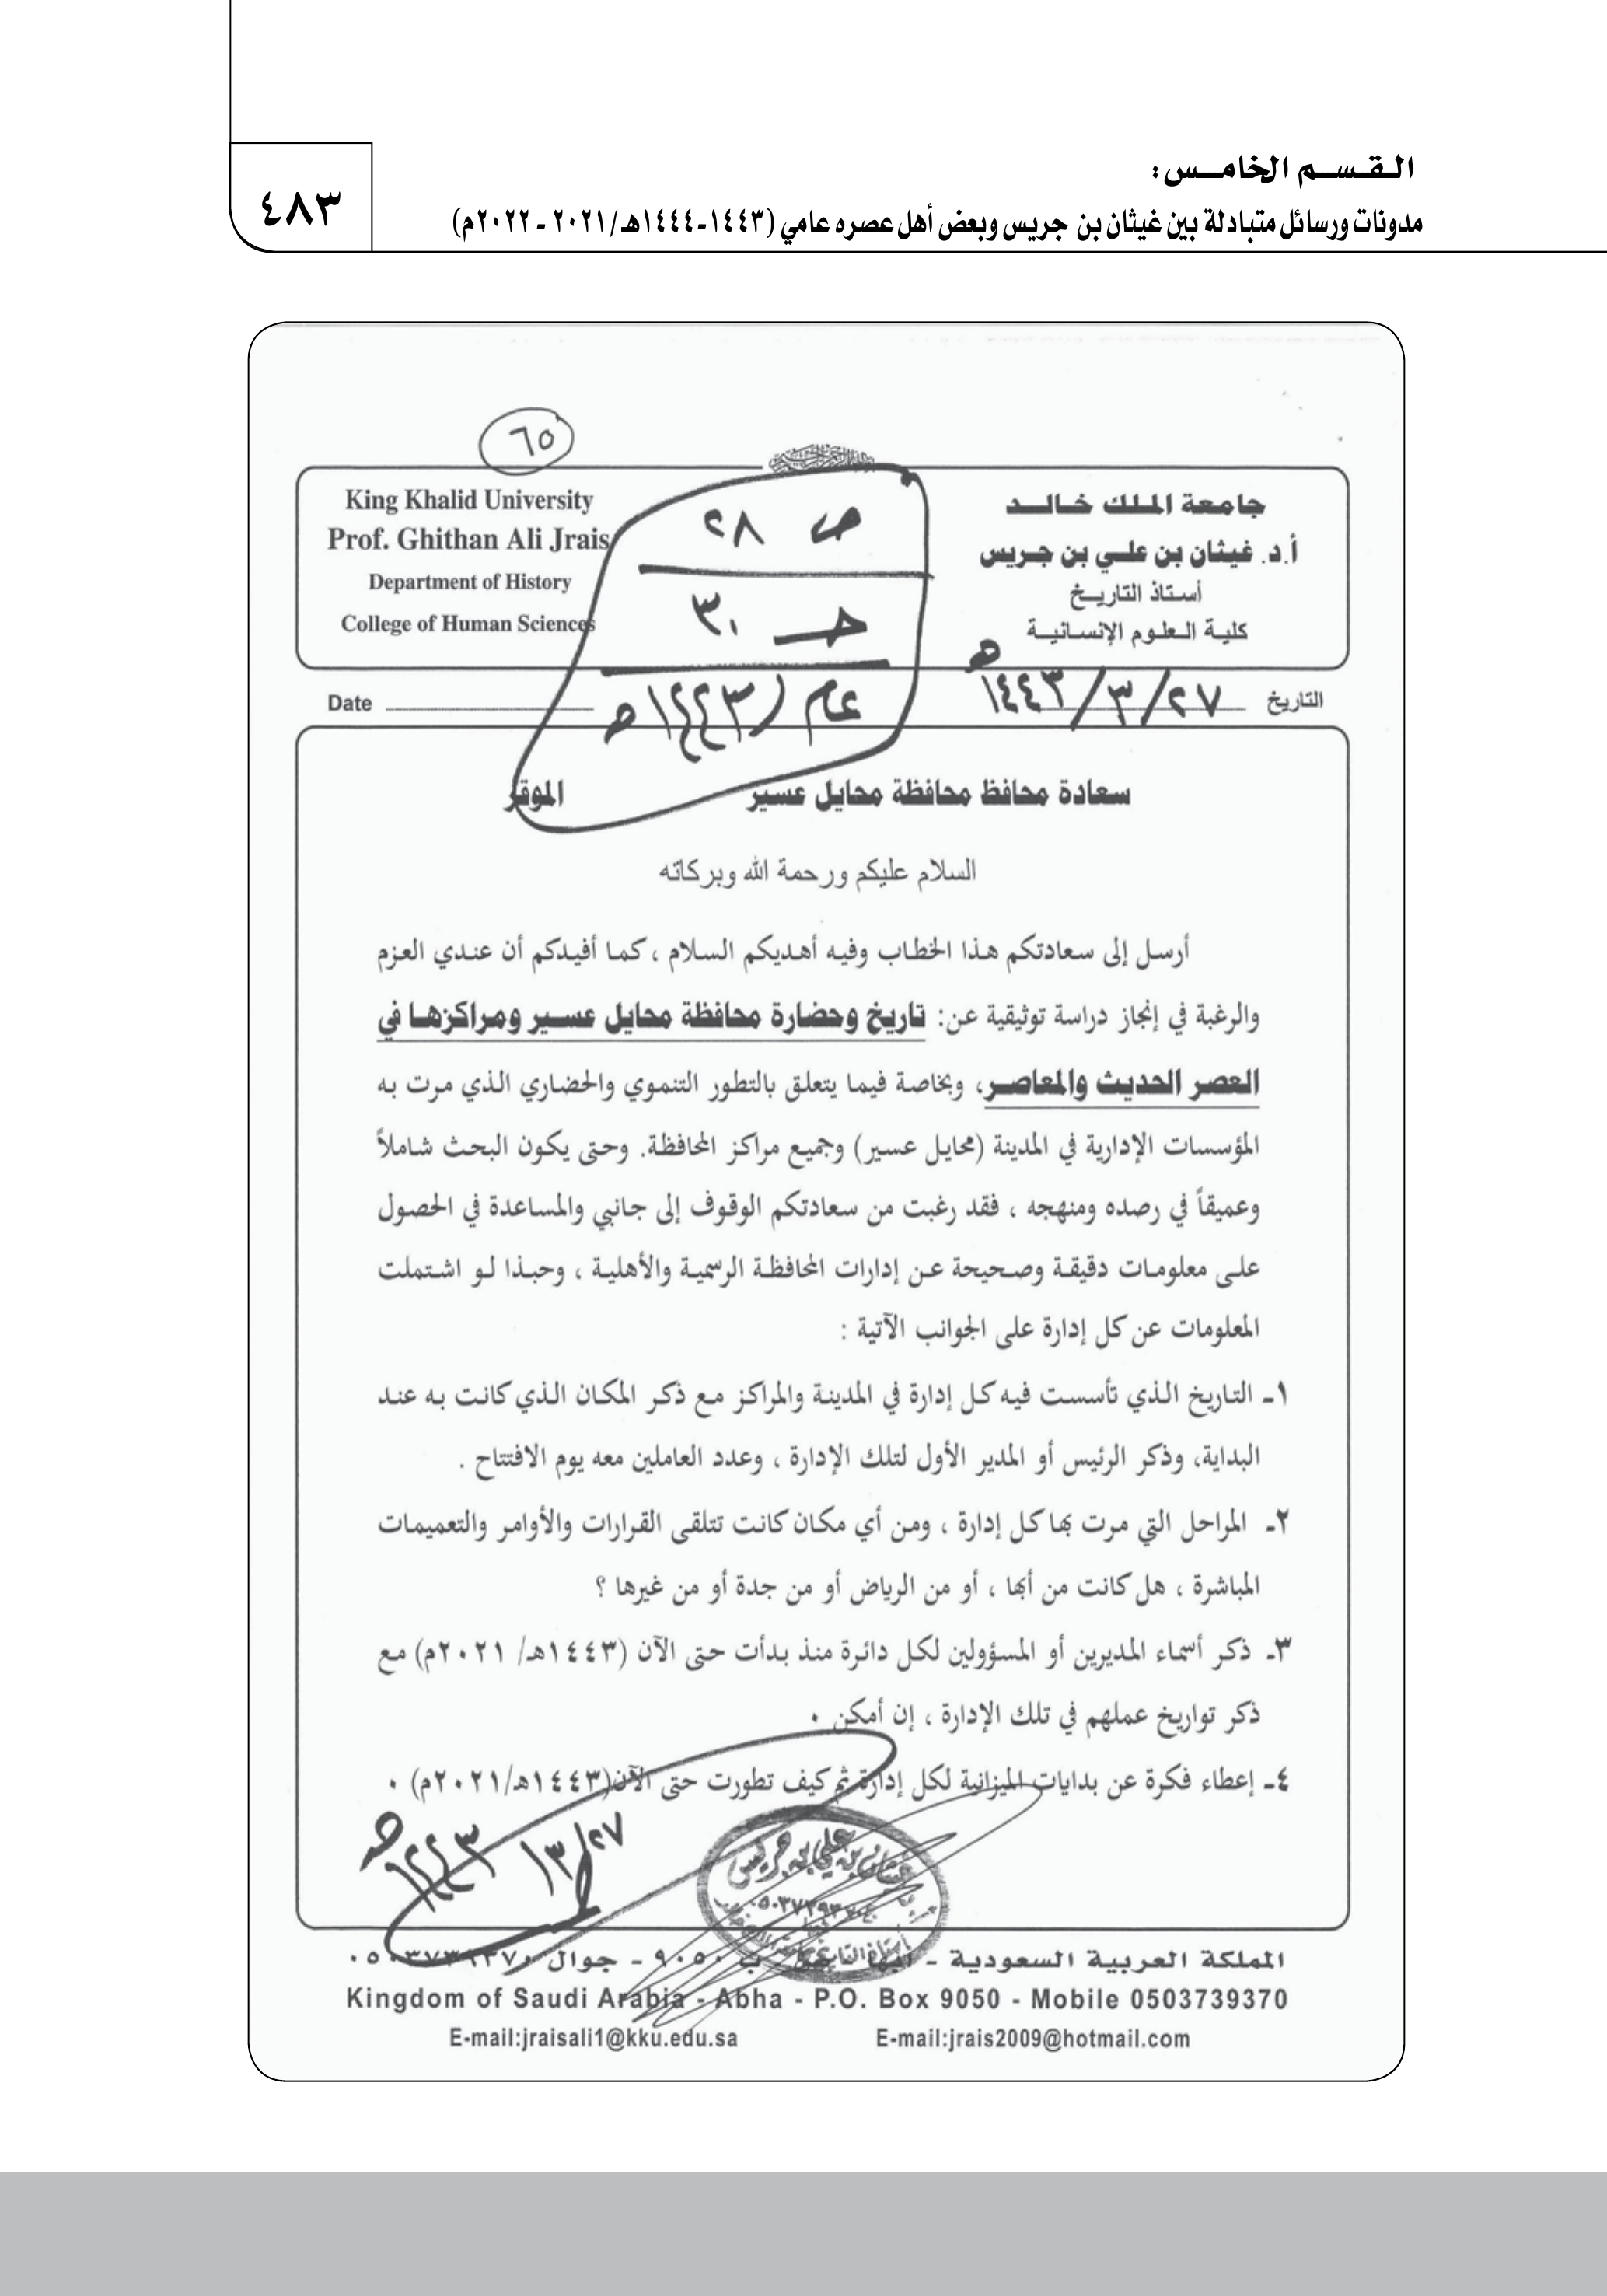 القسم الخامس:
مدونات ورسائل متبادلة بين غيثان بن جريس وبعض أهل عصره عامي (١٤٤٣-١٤٤٤هـ/ ٢٠٢١ - ٢٠٢٢م)
٤٨٣
٦٥
جامعة الملك خالد
أ.د. غيثان بن علي بن جريس
أستاذ التاريخ
كلية العلوم الإنسانية
King Khalid University
Prof. Ghithan Ali Jrais
Department of History
College of Human Sciences
ص ٢٨
ج ٣٠
عام / ١٤٤٣هـ
التاريخ ٢٧/ ٣/ ١٤٤٣هـ
Date
سعادة محافظ محافظة محايل عسير الموقر
السلام عليكم ورحمة الله وبركاته
أرسل إلى سعادتكم هذا الخطاب وفيه أهديكم السلام ، كما أفيدكم أن عندي العزم
والرغبة في إنجاز دراسة توثيقية عن: تاريخ وحضارة محافظة محايل عسير ومراكزها في
العصر الحديث والمعاصر، وبخاصة فيما يتعلق بالتطور التنموي والحضاري الذي مرت به
المؤسسات الإدارية في المدينة (محايل عسير) وجميع مراكز المحافظة. وحتى يكون البحث شاملاً
وعميقاً في رصده ومنهجه ، فقد رغبت من سعادتكم الوقوف إلى جانبي والمساعدة في الحصول
على معلومات دقيقة وصحيحة عن إدارات المحافظة الرسمية والأهلية ، وحبذا لو اشتملت
المعلومات عن كل إدارة على الجوانب الآتية :
١ـ التاريخ الذي تأسست فيه كل إدارة في المدينة والمراكز مع ذكر المكان الذي كانت به عند
البداية، وذكر الرئيس أو المدير الأول لتلك الإدارة ، وعدد العاملين معه يوم الافتتاح .
٢ـ المراحل التي مرت بها كل إدارة ، ومن أي مكان كانت تتلقى القرارات والأوامر والتعميمات
المباشرة ، هل كانت من أبها ، أو من الرياض أو من جدة أو من غيرها ؟
٣ـ ذكر أسماء المديرين أو المسؤولين لكل دائرة منذ بدأت حتى الآن (١٤٤٣هـ/ ٢٠٢١م) مع
ذكر تواريخ عملهم في تلك الإدارة ، إن أمكن ٠
٤ـ إعطاء فكرة عن بدايات الميزانية لكل إدارة ثم كيف تطورت حتى الآن(١٤٤٣هـ/٢٠٢١م) ٠
٢٧/ ٣/ ١٤٤٣هـ
غيثان بن علي بن جريس
المملكة العربية السعودية - أبها - ص. ب ٩٠٥٠ - جوال ٠٥٠٣٧٣٩٣٧٠
Kingdom of Saudi Arabia - Abha - P.O. Box 9050 - Mobile 0503739370
E-mail:jraisali1@kku.edu.sa E-mail:jrais2009@hotmail.com